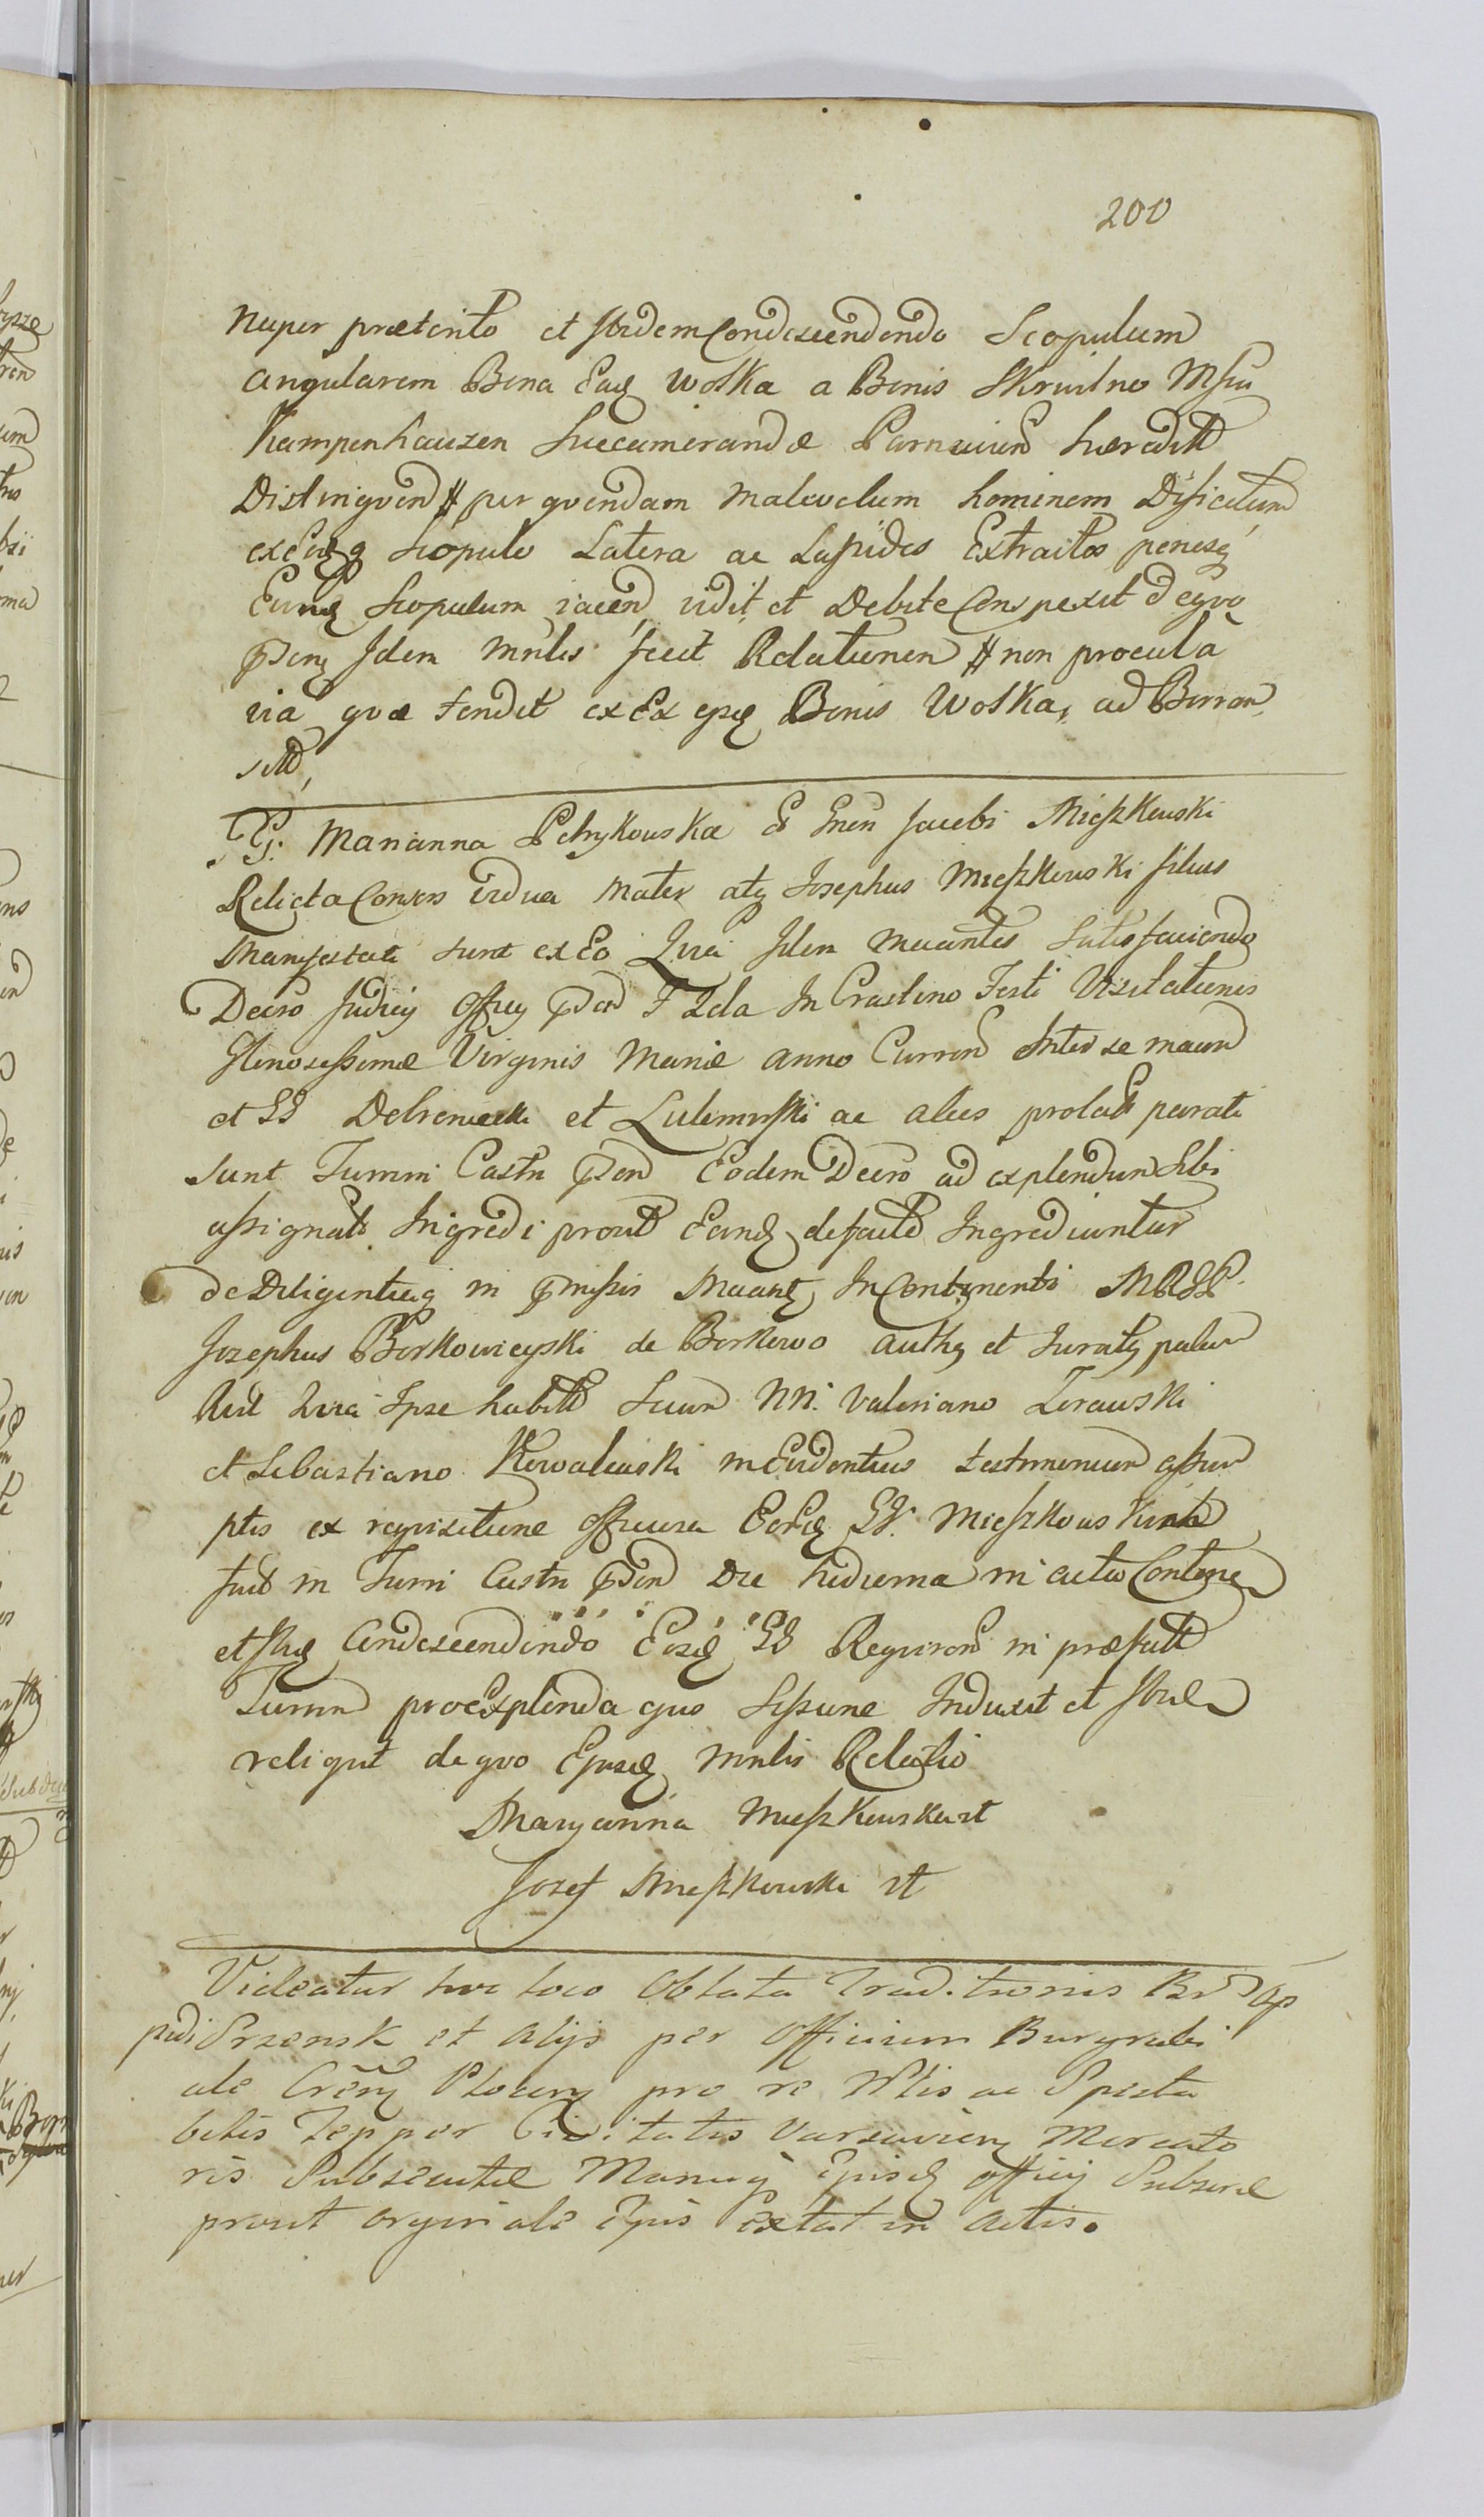 200
nuper præterito et Ibidem Condescendendo Scopulum
angularem Bona Eadq Wolka a Bonis Skrwilno Msci
Kampenhauzen Succamerandæ Parnavien hæredit
Distingvend # per qvendam malevolum hominem Disiectum
ex Eodq Scopulo Latera ac Lapides Extractos penesq
Eundq Scopulum iacen vidit et Debite Conspexit de qvo
pden Idem Mnlis fecit Relationem # non procul a
via qvæ tendit ex Ex epse Bonis Wolka, ad Borron
sitt
G: Marianna Petrykowska G Gnen Jacobi Mieszkowski
Relicta Consors vidua Mater atq Josephus Mieszkowski filius
Manifestati sunt ex Eo Qvia Idem Mcantes Satisfaciendo
Decro Judicy Officy pden F 2da In Crastino Festi Visitationis
Gloriosissimæ Virginis Mariæ anno Curren Inter se Mcan
et GG Dobrowolski et Lubomirski ac alios prolat parati
sunt Turrim Castri pden Eodem Decro ad explendum Sibi
assignat Ingredi prout Eandq defacto Ingrediuntur
de Diligentiaq in pmissis Mcantq In Continenti MRGP.
Jozephus Borkowieyski de Borkowo authq et Juratq palam
Recl Qvia Ipse habitt Secum NN. Valeriano Zorawski
et Sebastiano Kowalewski in Evidentius testimonium assum
ptis ex reqvisitione officiosa Eordq GG. Mieszkowskich
fuit in Turri Castri pden Die hodierna in actu Conten
et Ibiq Condescendendo Eosdq GG Reqviren in præfatt
Turrim pro explenda qvo Sessione Induxit et Ibidem
reliqvit de qvo Ejusdq Mnlis Relatio
Maryanna Mieszkowska st
Jozef Mieszkowski st
Videatur hoc loco Oblata Traditionis Br Op
pidi Szrensk et alijs per Officium Burgrabi
ale Crën Plocen pro re Nblis ac Specta
bilis Tepper Civitatis Varsavien Mercato
ris Subsecutæ Manuq Ejusdq Officij Subscr
prout originale Ejus Extat in Actis.